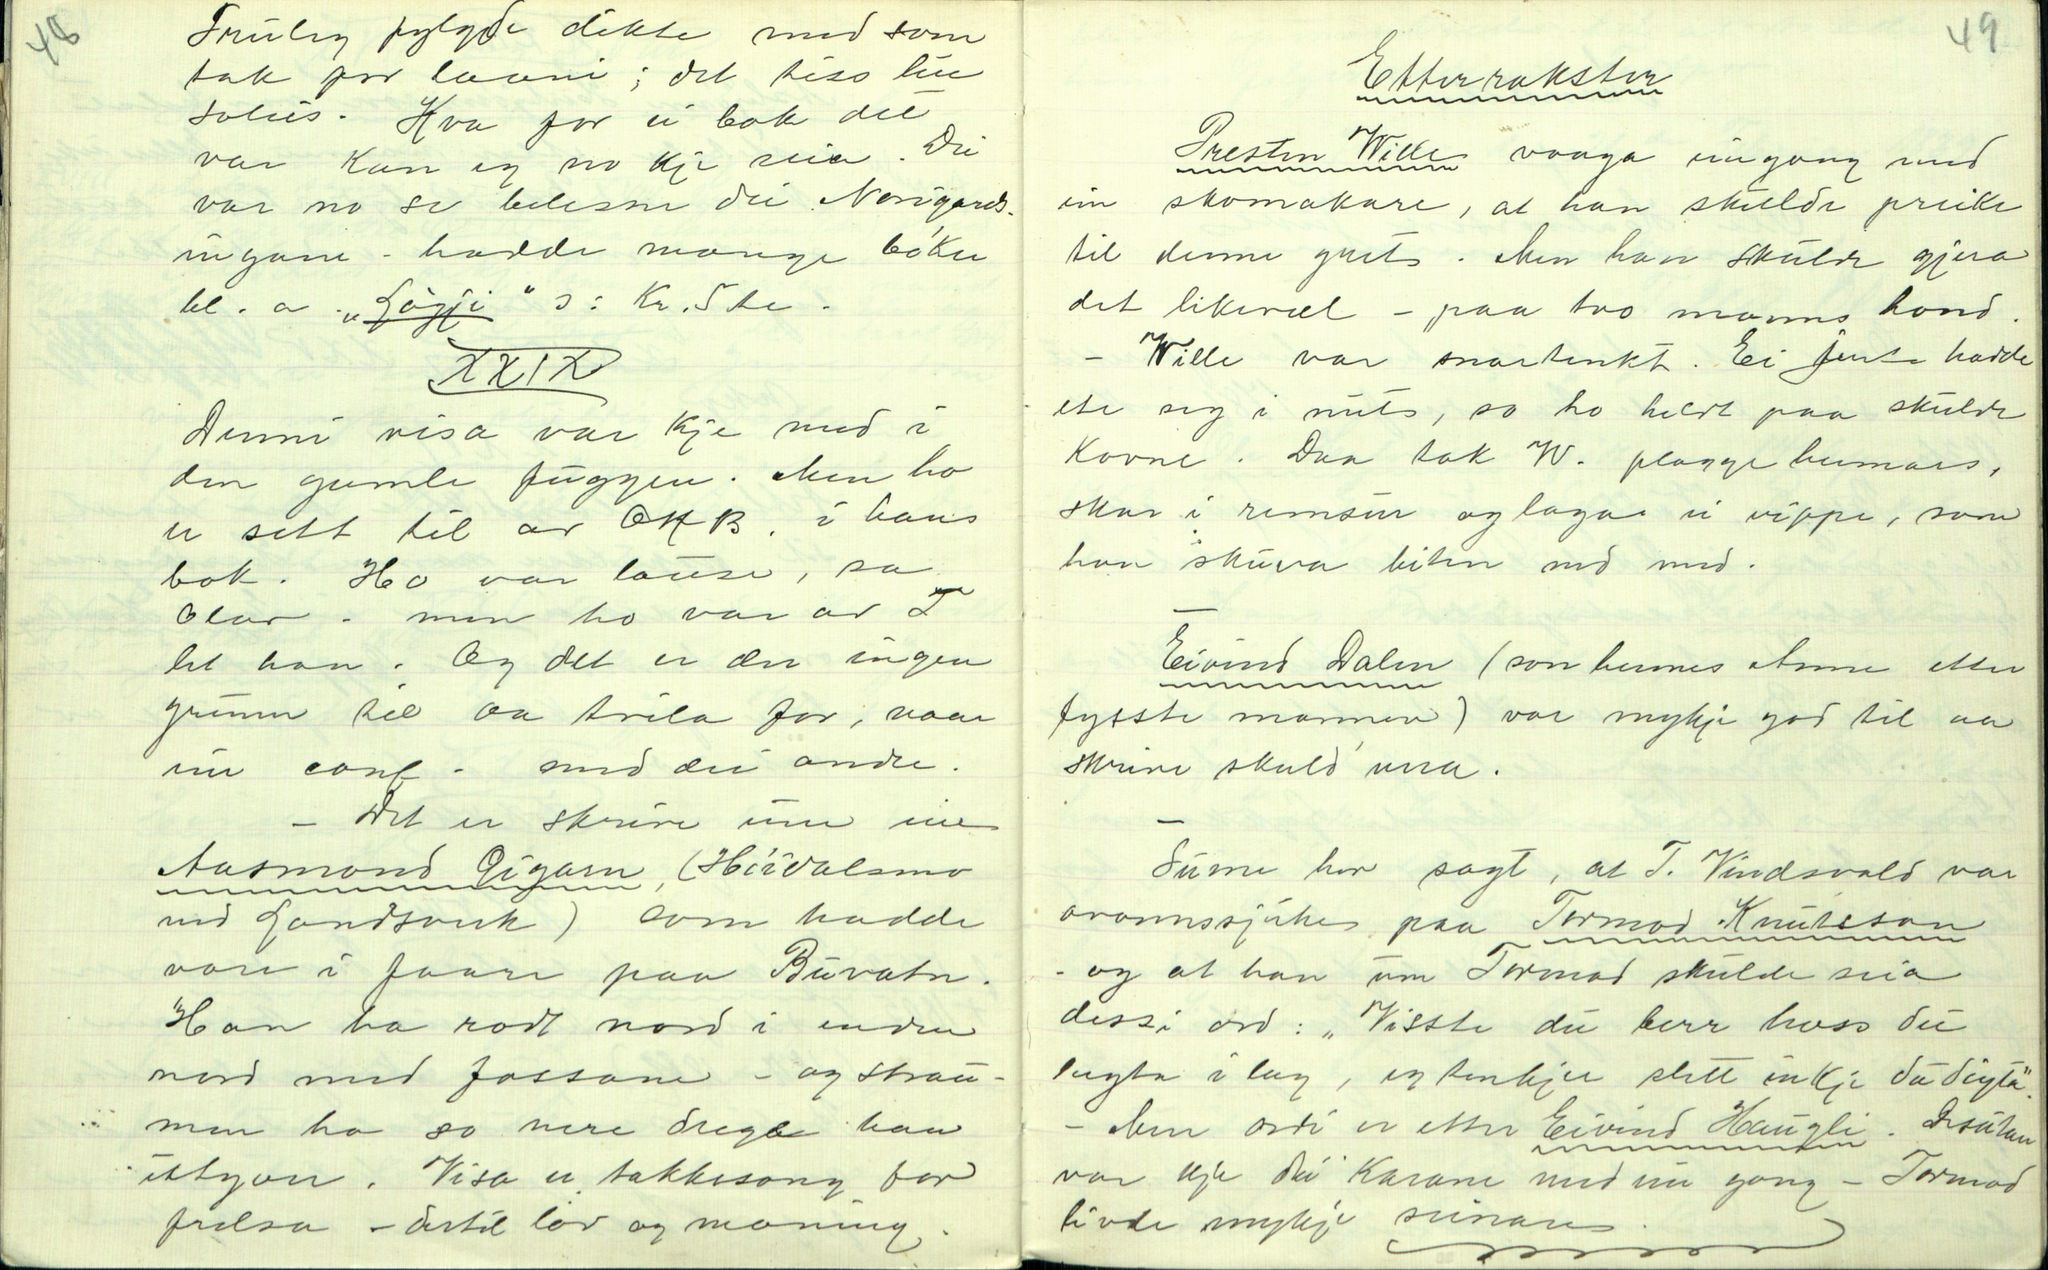 48
Truleg fylgde dikte med som
tak for laani; det tess lue
soleis. Kva for ei bok det
var kan eg no kje seia. Dei
var no so belesne dei Norigards-
ingane - hadde mange bøker
bl. a. "Lögji" ɔ: Kr. 5te.
XXIX
Denni visa var kje med i
den gamle fuggen. Men ho
er sett til av OHB. i hans
bok. Ho var lause, sa
Olav - men ho var av T
let han. Og det er der ingen
grunn til aa tvila for, naar
ein conf. med dei andre.
- Det er skrive um ein
Aasmond Øigarn, (Höidalsmo
ved Landsverk) som hadde
vore i faare paa Buvatn.
"Han ha rodt nord i enden
nord med fossane - og strau-
men ha so nere dregje han
utyver. Visa er takkesong for
frelsa - dertil lov og maning.
49
Etterrakster
Presten Wille vaaga eingong med
ein skomakare, at han skulde preike
til denne gret. Men han skulde gjera
det likevel - paa two manns hand.
- Wille var snartenkt. Ei jente hadde
ete seg i nut, so ho heldt paa skulde
kovne. Daa tok W. plagge hennars,
skar i remsur og laga ei vippe, som
han skuva biten ned med.
Eivind Dalen (son hennes Anne etter
fysste mannen) var mykje god til aa
skrive skuld' vera.
Sume har sagt, at T. Vindsvald var
ovannssjuke paa Tormod Knutsson
- og at han um Tormod skulde seia
dessi ord: "Visste du berr hoss du
lygta i lag, eg tenkjer slett inkje du digta".
- Men ordi er etter Eivind Haugli. Desutan
var kje dei karane med ein gong - Tormod
livde mykje seinare.